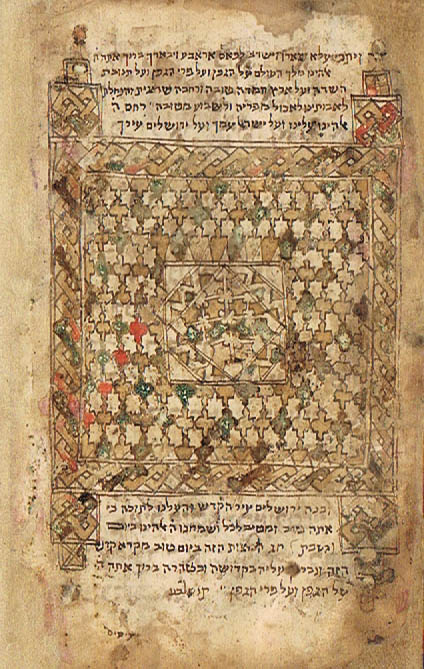 וישרב לכאס אראבע ויבארך ברוך אתה ה
אלהינו מלך העולם על הגפן ועל פרי הגפן ועל תנובת
השדה ועל ארץ חמדה טובה ורחבה שרצית והנחלת
לאבותינו לאכול מפריה ולשבוע מטובה רחם ה
אלהינו עלינו ועל ישראל עמך ועל ירושלים עירך
ובנה ירושלים עיר הקדש והעלנו לתוכה כי
אתה טוב ומטיב לכל ושמחנו ה אלהינו ביום
חג המצות הזה ביום טוב מקרא קדש
הזה עליה בקדושה ובטהרה ברוך אתה ה
על הגפן ועל פרי הגפן